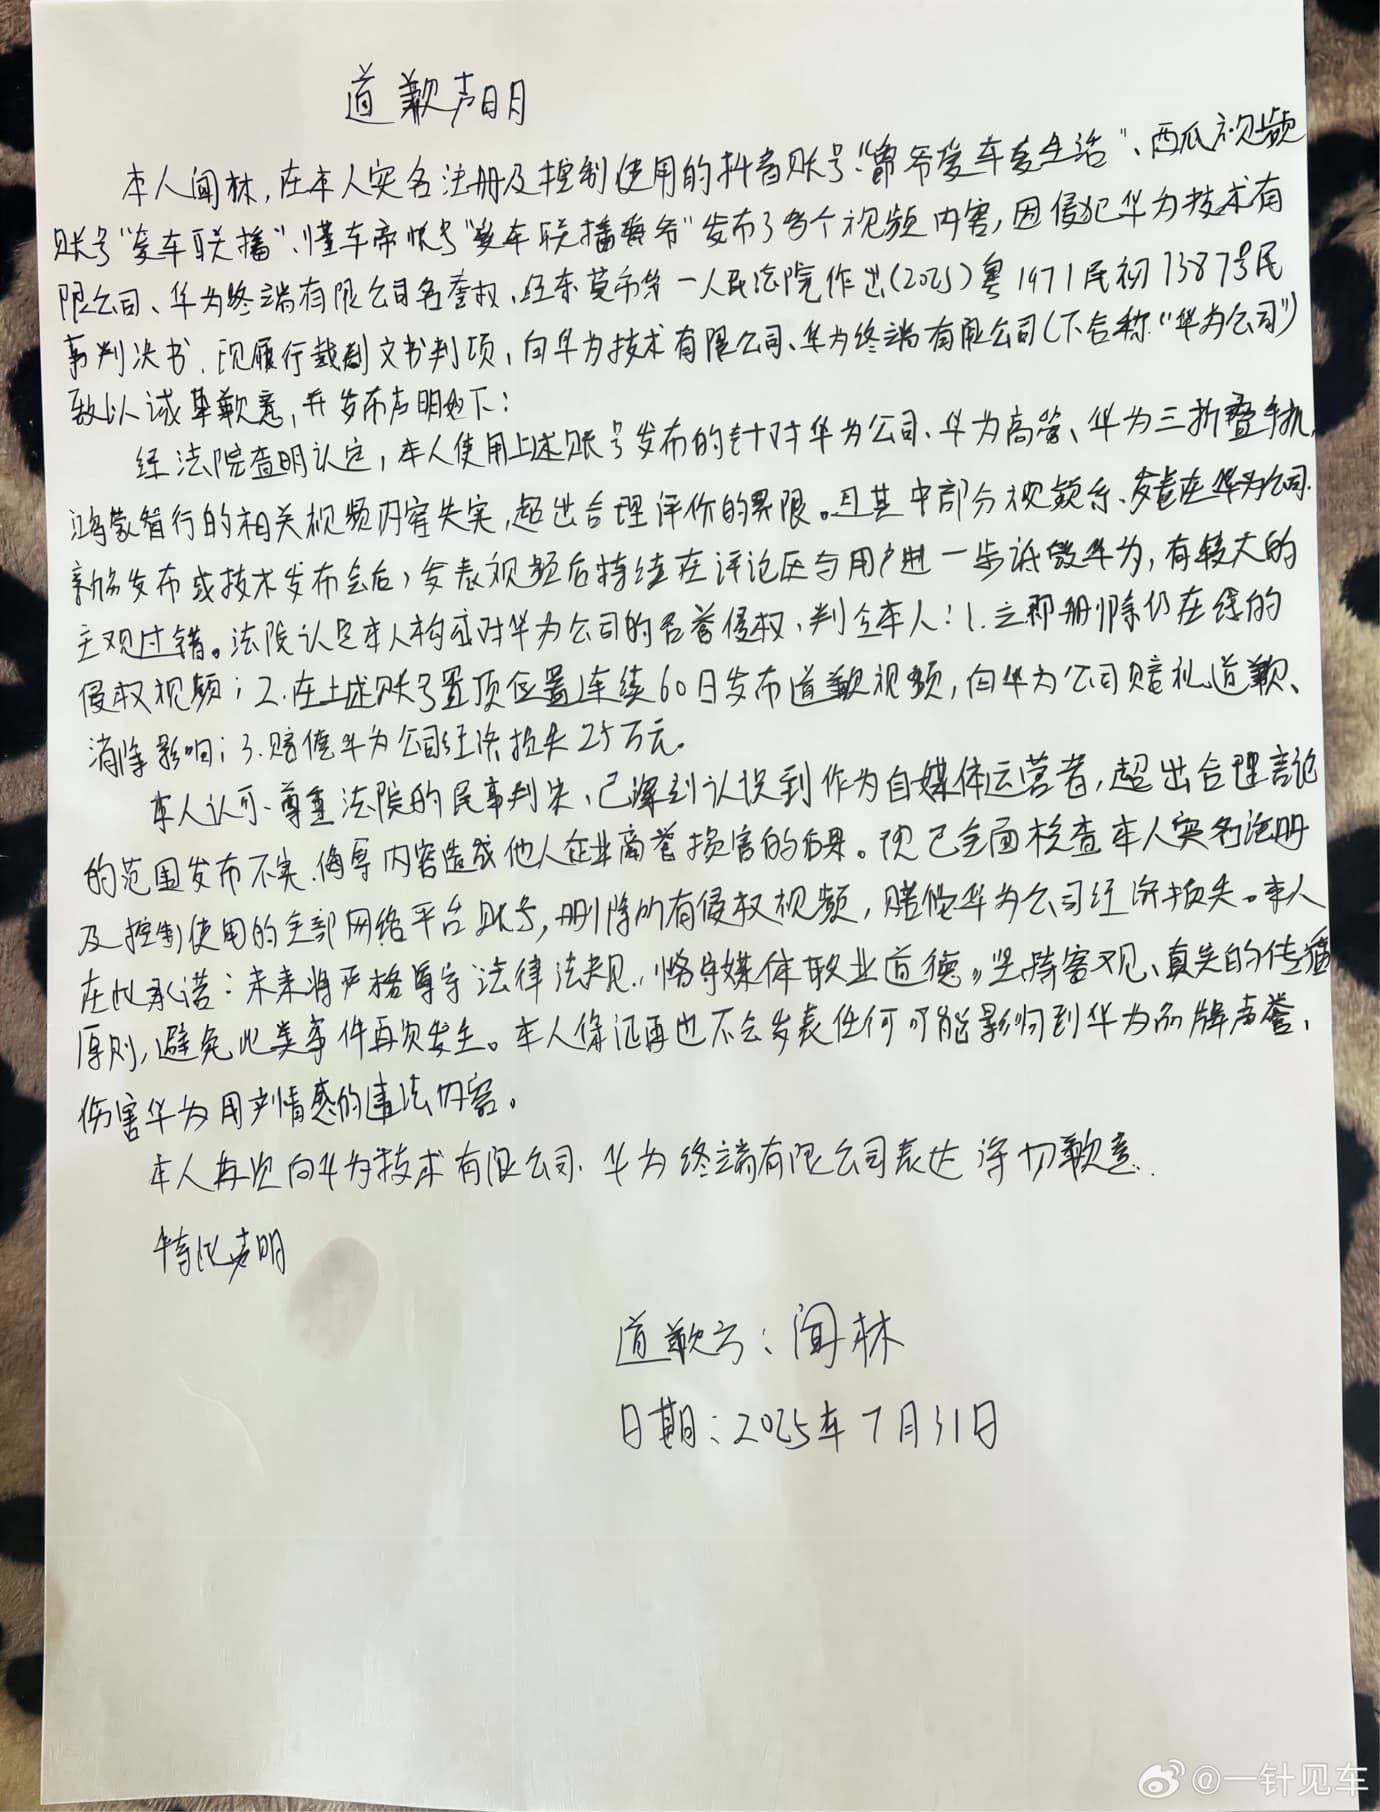 道歉声明
本人闻林,在本人实名注册及控制使用的抖音账号“爱车爱生活”、西瓜视频
账号“爱车联播”、懂车帝帐号“爱车联播”发布了多个视频内容,因侵犯华为技术有
限公司、华为终端有限公司名誉权,经东莞市第一人民法院作出(2025)粤1971民初13873号民
事判决书,现履行裁判文书判项,向华为技术有限公司、华为终端有限公司(下合称“华为公司”)
致以诚挚歉意,并发布声明如下:
经法院查明认定,本人使用上述账号发布的针对华为公司、华为高管、华为三折叠手机、
鸿蒙智行的相关视频内容失实,超出合理评价的界限。且其中部分视频系发表在华为公司
新品发布或技术发布会后,发表视频后持续在评论区与用户进一步诋毁华为,有较大的
主观过错。法院认定本人构成对华为公司的名誉侵权,判令本人:1.立即删除仍在线的
侵权视频;2.在上述账号置顶位置连续60日发布道歉视频,向华为公司赔礼道歉、
消除影响;3.赔偿华为公司经济损失25万元。
本人认可、尊重法院的民事判决,已深刻认识到作为自媒体运营者,超出合理言论
的范围发布不实、侮辱内容造成他人企业商誉损害的后果。现已全面核查本人实名注册
及控制使用的全部网络平台账号,删除所有侵权视频,赔偿华为公司经济损失。本人
在此承诺:未来将严格遵守法律法规,恪守媒体职业道德,坚持客观、真实的传播
原则,避免此类事件再次发生。本人保证再也不会发表任何可能影响到华为品牌声誉、
伤害华为用户情感的违法内容。
本人再次向华为技术有限公司、华为终端有限公司表达深切歉意.
特此声明
道歉方:闻林
日期:2025年7月31日
@一针见车